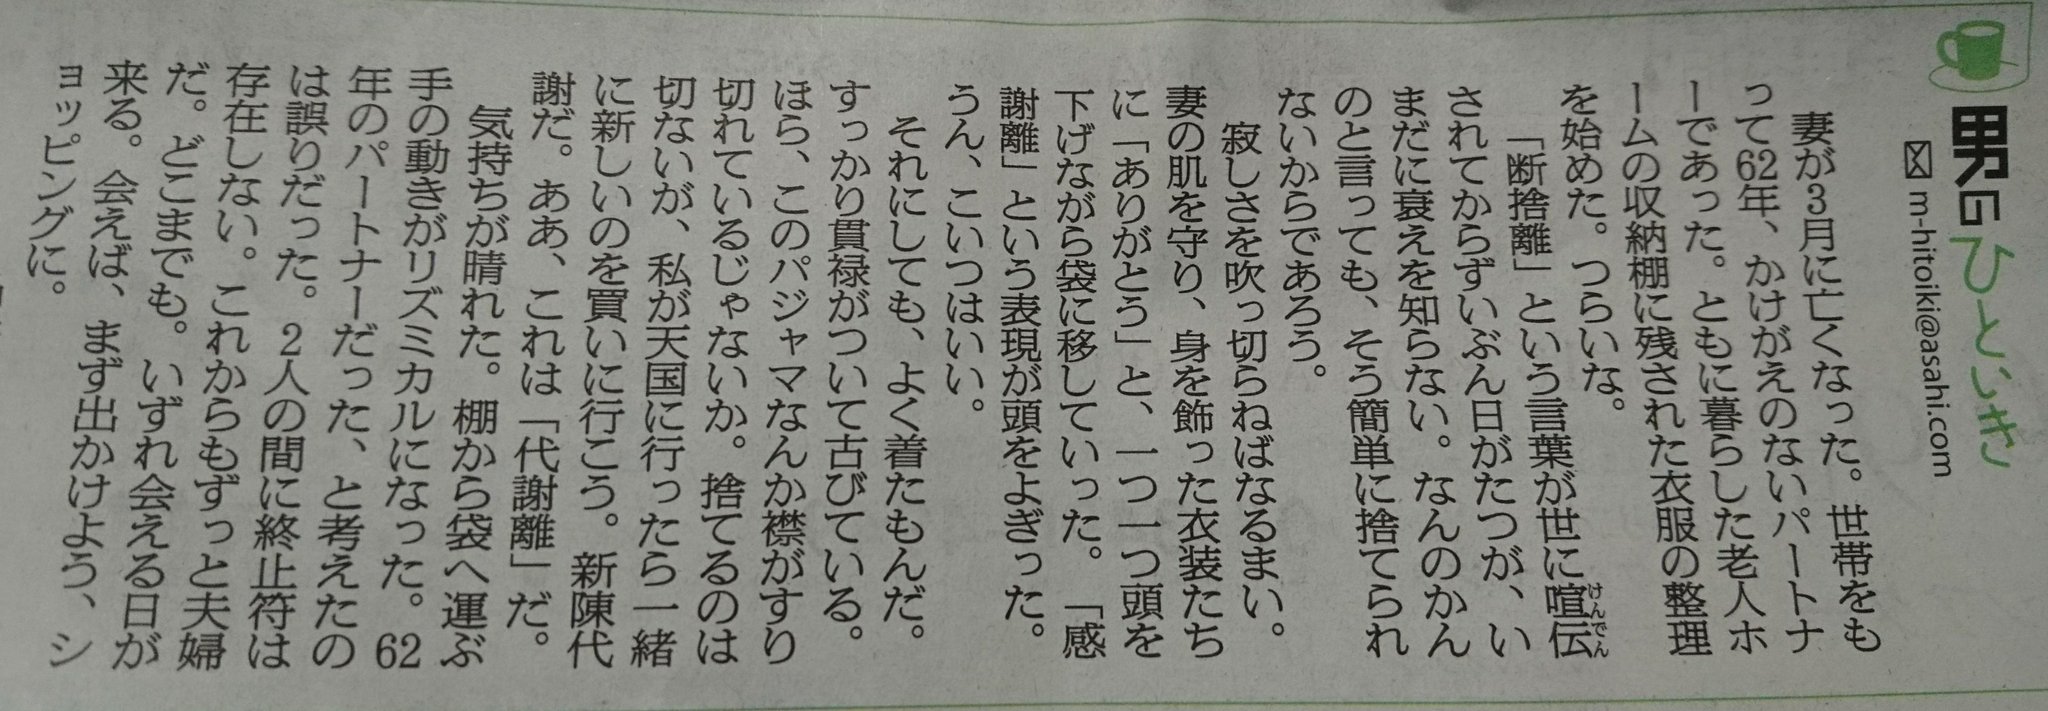 男のひといき
m-hitoiki@asahi.com
妻が3月に亡くなった。世帯をも
って62年、かけがえのないパートナ
ーであった。ともに暮らした老人ホ
ームの収納棚に残された衣服の整理
を始めた。つらいな。
「断捨離」という言葉が世に喧伝
けんでん
されてからずいぶん日がたつが、い
まだに衰えを知らない。なんのかん
のと言っても、そう簡単に捨てられ
ないからであろう。
寂しさを吹っ切らねばなるまい。
妻の肌を守り、身を飾った衣装たち
に「ありがとう」と、一つ一つ頭を
下げながら袋に移していった。「感
謝離」という表現が頭をよぎった。
うん、こいつはいい。
それにしても、よく着たもんだ。
すっかり貫禄がついて古びている。
ほら、このパジャマなんか襟がすり
切れているじゃないか。捨てるのは
切ないが、私が天国に行ったら一緒
に新しいのを買いに行こう。新陳代
謝だ。ああ、これは「代謝離」だ。
気持ちが晴れた。棚から袋へ運ぶ
手の動きがリズミカルになった。62
年のパートナーだった、と考えたの
は誤りだった。2人の間に終止符は
存在しない。これからもずっと夫婦
だ。どこまでも。いずれ会える日が
来る。会えば、まず出かけよう、シ
ョッピングに。